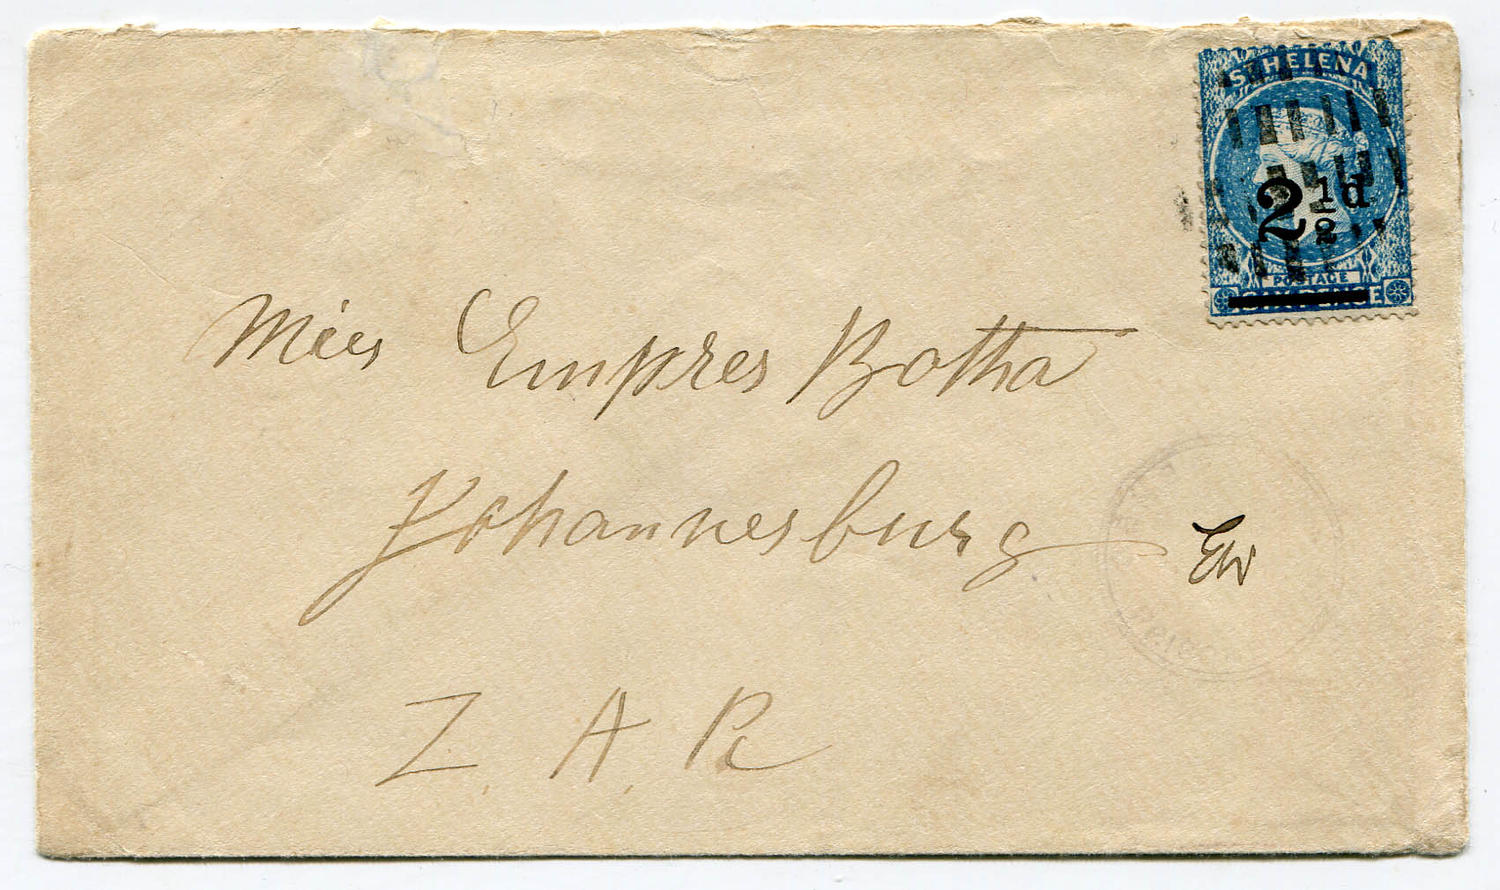 ST HELENA
2½d
POSTAGE
SIX PENCE
Miss Empres Botha
Johannesburg
Z. A. R